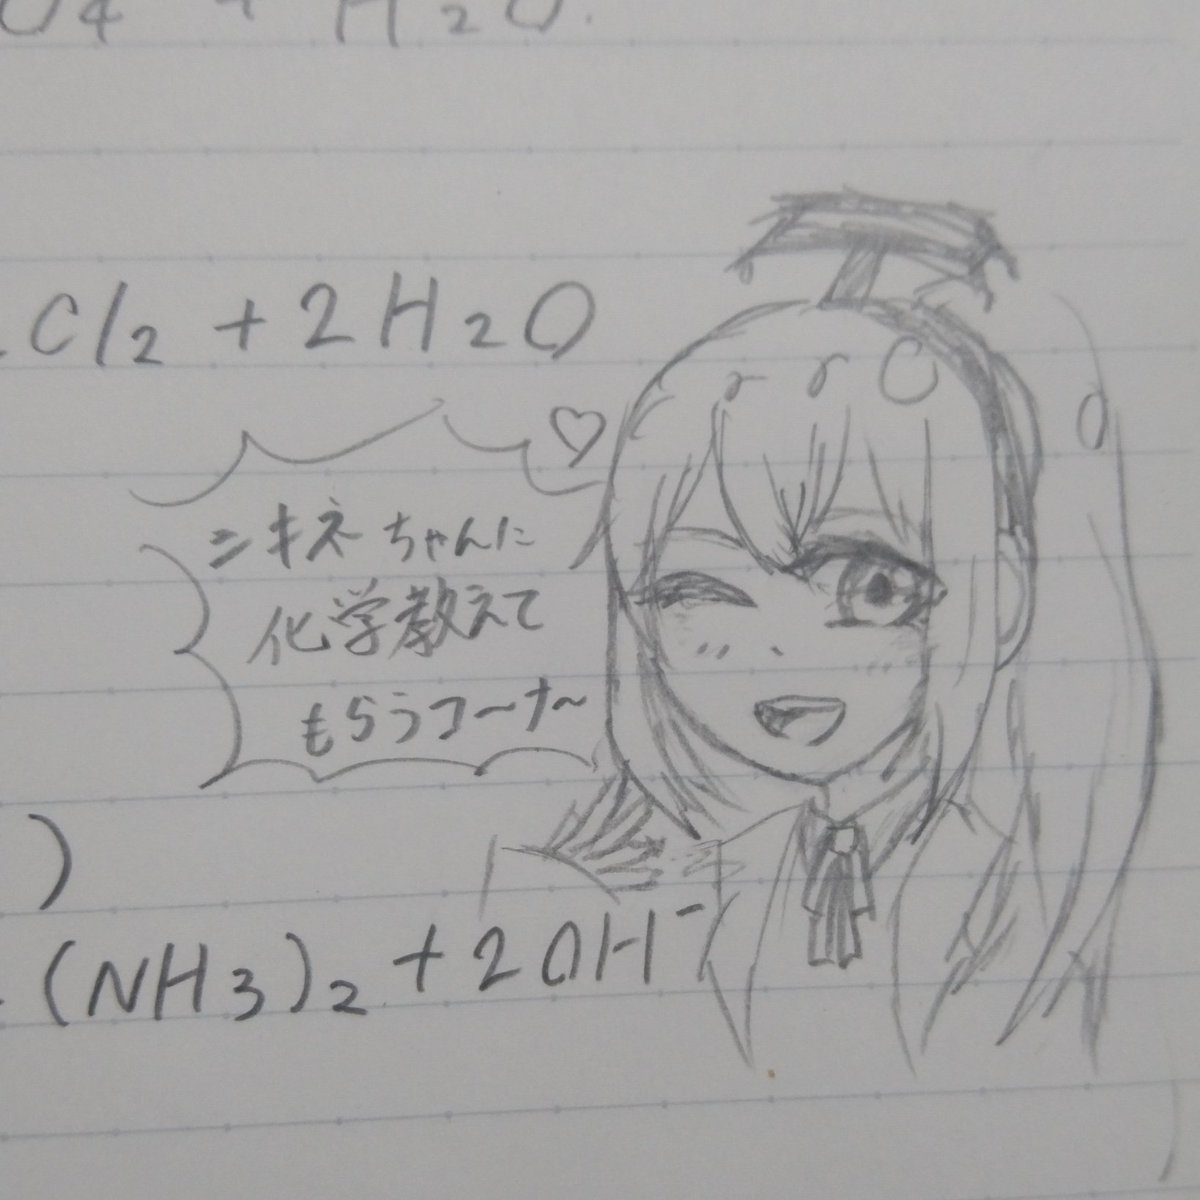 O₄ + H₂O.
Cl₂ + 2H₂O
シキネちゃんに
化学教えて
もらうコーナ〜
)
(NH₃)₂ + 2OH⁻